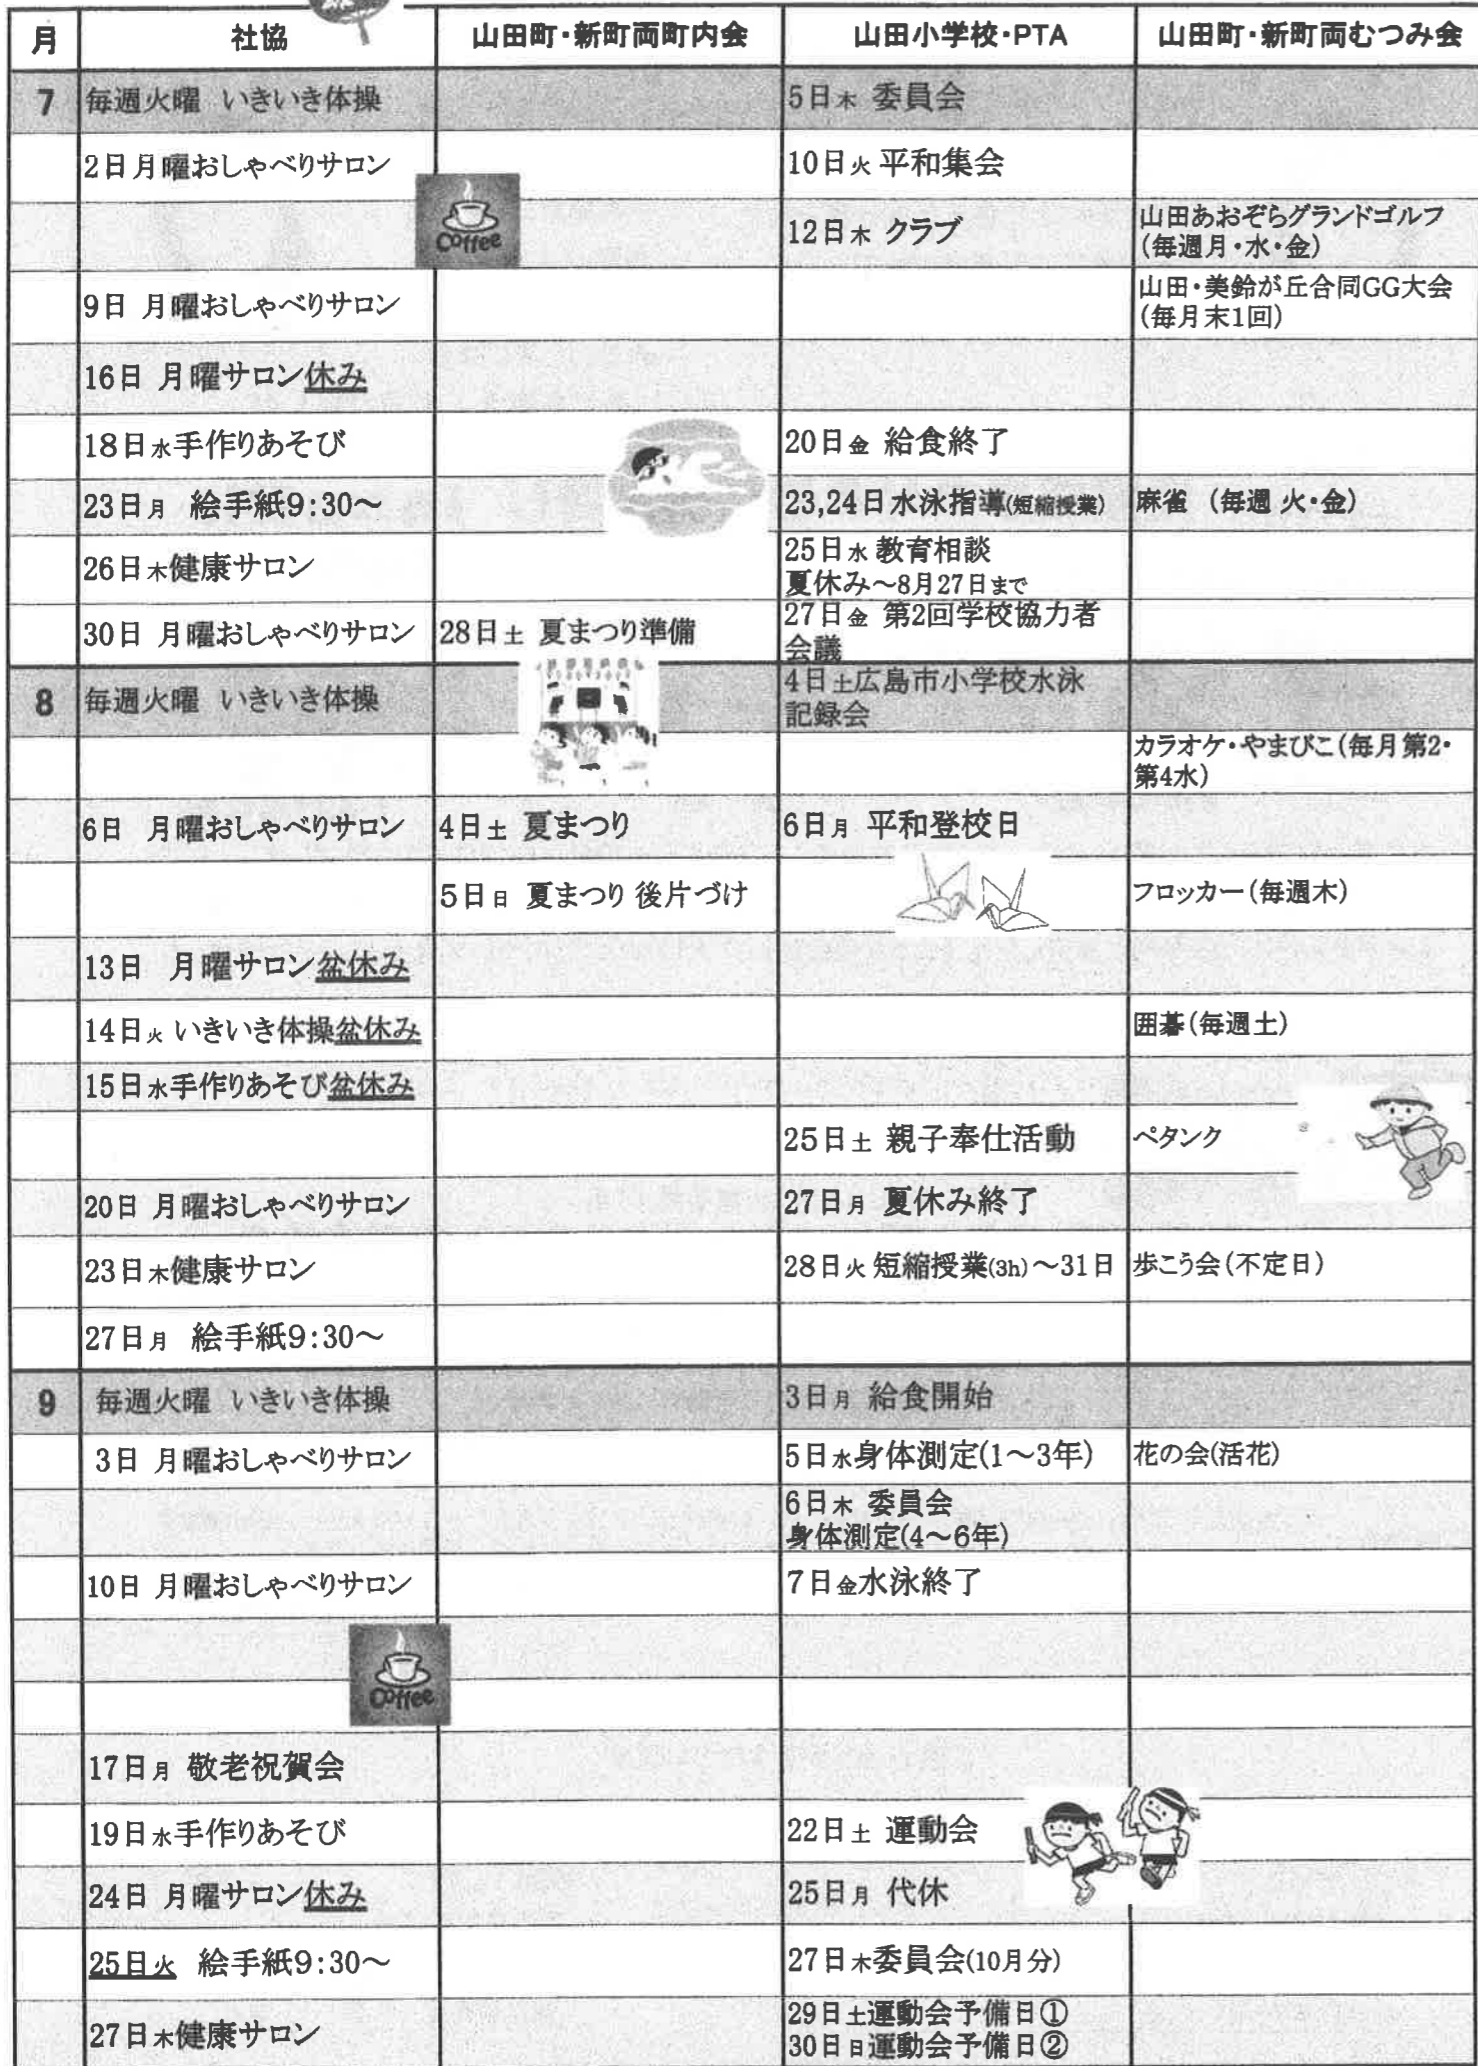 月 社協 山田町・新町両町内会 山田小学校・PTA 山田町・新町両むつみ会
7 毎週火曜 いきいき体操 5日木 委員会
2日月曜おしゃべりサロン 10日火 平和集会
Coffee
12日木 クラブ 山田あおぞらグランドゴルフ
(毎週月・水・金)
9日 月曜おしゃべりサロン 山田・美鈴が丘合同GG大会
(毎月末1回)
16日 月曜サロン休み
18日水手作りあそび 20日金 給食終了
23日月 絵手紙9:30～ 23,24日水泳指導(短縮授業) 麻雀 (毎週 火・金)
26日木健康サロン 25日水 教育相談
夏休み～8月27日まで
30日 月曜おしゃべりサロン 28日土 夏まつり準備 27日金 第2回学校協力者
会議
8 毎週火曜 いきいき体操 4日土広島市小学校水泳
記録会
カラオケ・やまびこ(毎月第2・
第4水)
6日 月曜おしゃべりサロン 4日土 夏まつり 6日月 平和登校日
5日日 夏まつり 後片づけ フロッカー(毎週木)
13日 月曜サロン盆休み
14日火 いきいき体操盆休み 囲碁(毎週土)
15日水手作りあそび盆休み
25日土 親子奉仕活動 ペタンク
20日 月曜おしゃべりサロン 27日月 夏休み終了
23日木健康サロン 28日火 短縮授業(3h)～31日 歩こう会(不定日)
27日月 絵手紙9:30～
9 毎週火曜 いきいき体操 3日月 給食開始
3日 月曜おしゃべりサロン 5日水身体測定(1～3年) 花の会(活花)
6日木 委員会
身体測定(4～6年)
10日 月曜おしゃべりサロン 7日金水泳終了
Coffee
17日月 敬老祝賀会
19日水手作りあそび 22日土 運動会
24日 月曜サロン休み 25日月 代休
25日火 絵手紙9:30～ 27日木委員会(10月分)
27日木健康サロン 29日土運動会予備日①
30日日運動会予備日②